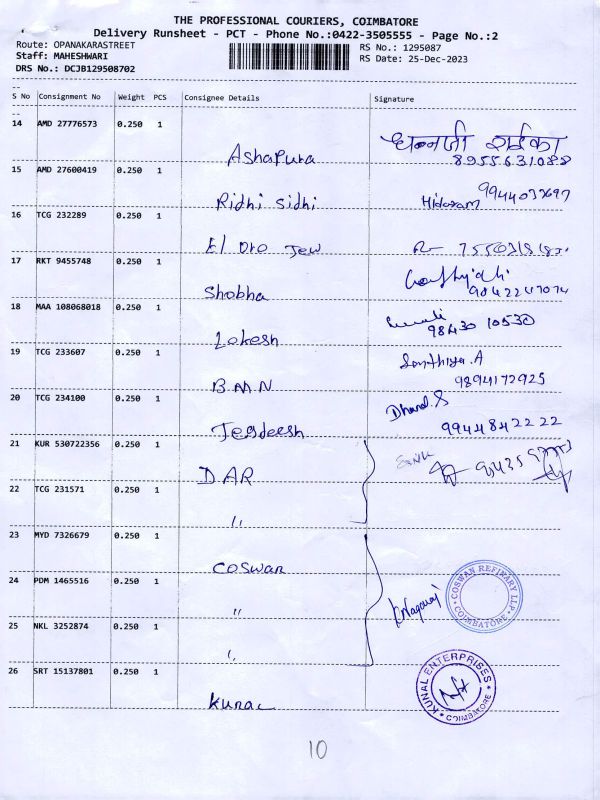 THE PROFESSIONAL COURIERS, COIMBATORE
Delivery Runsheet - PCT - Phone No.:0422-3505555 - Page No.:2
Route: OPANAKARASTREET
RS No.: 1295087
Staff: MAHESHWARI
RS Date: 25-Dec-2023
DRS No.: DCJB129508702
S No Consignment No Weight PCS Consignee Details Signature
14 AMD 27776573 0.250 1
Ashapura
8955631088
15 AMD 27600419 0.250 1
Ridhi Sidhi
16 TCG 232289 0.250 1
El Oro Jew
17 RKT 9455748 0.250 1
Shobha
9042247074
18 MAA 108068018 0.250 1
Lokesh
98430 10530
19 TCG 233607 0.250 1
Santhiya.A
BMN
9894172925
20 TCG 234100 0.250 1
Dhanal.S
Jegdeesh
9944842222
21 KUR 530722356 0.250 1
DAR
22 TCG 231571 0.250 1
"
23 MYD 7326679 0.250 1
COSWAR
24 PDM 1465516 0.250 1
"
Nagaraj
COSWAN REFINARY LLP.
COIMBATORE
25 NKL 3252874 0.250 1
"
26 SRT 15137801 0.250 1
KUNAL ENTERPRISES
COIMBATORE
Kunal
10